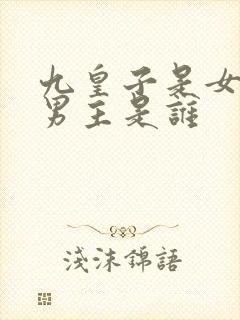 九皇子是女
男主是誰
淺沫錦語